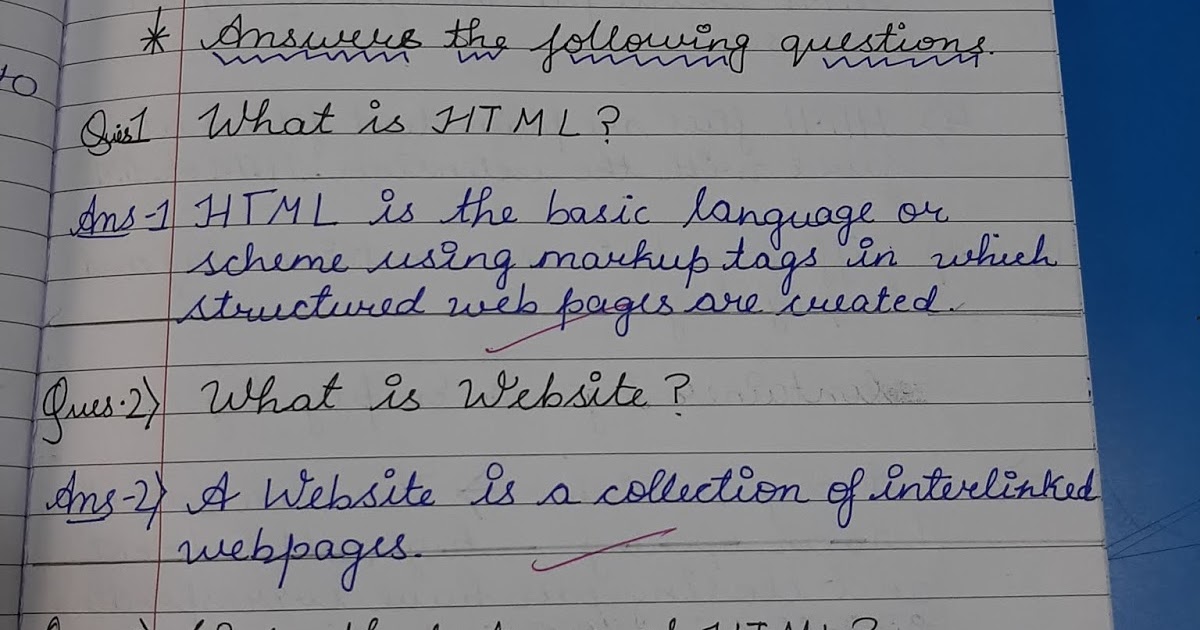 * Answers the following questions.
Ques1 What is HTML?
Ans-1 HTML is the basic language or
scheme using markup tags in which
structured web pages are created.
Ques.2) What is Website?
Ans-2) A Website is a collection of interlinked
webpages.
HTML?